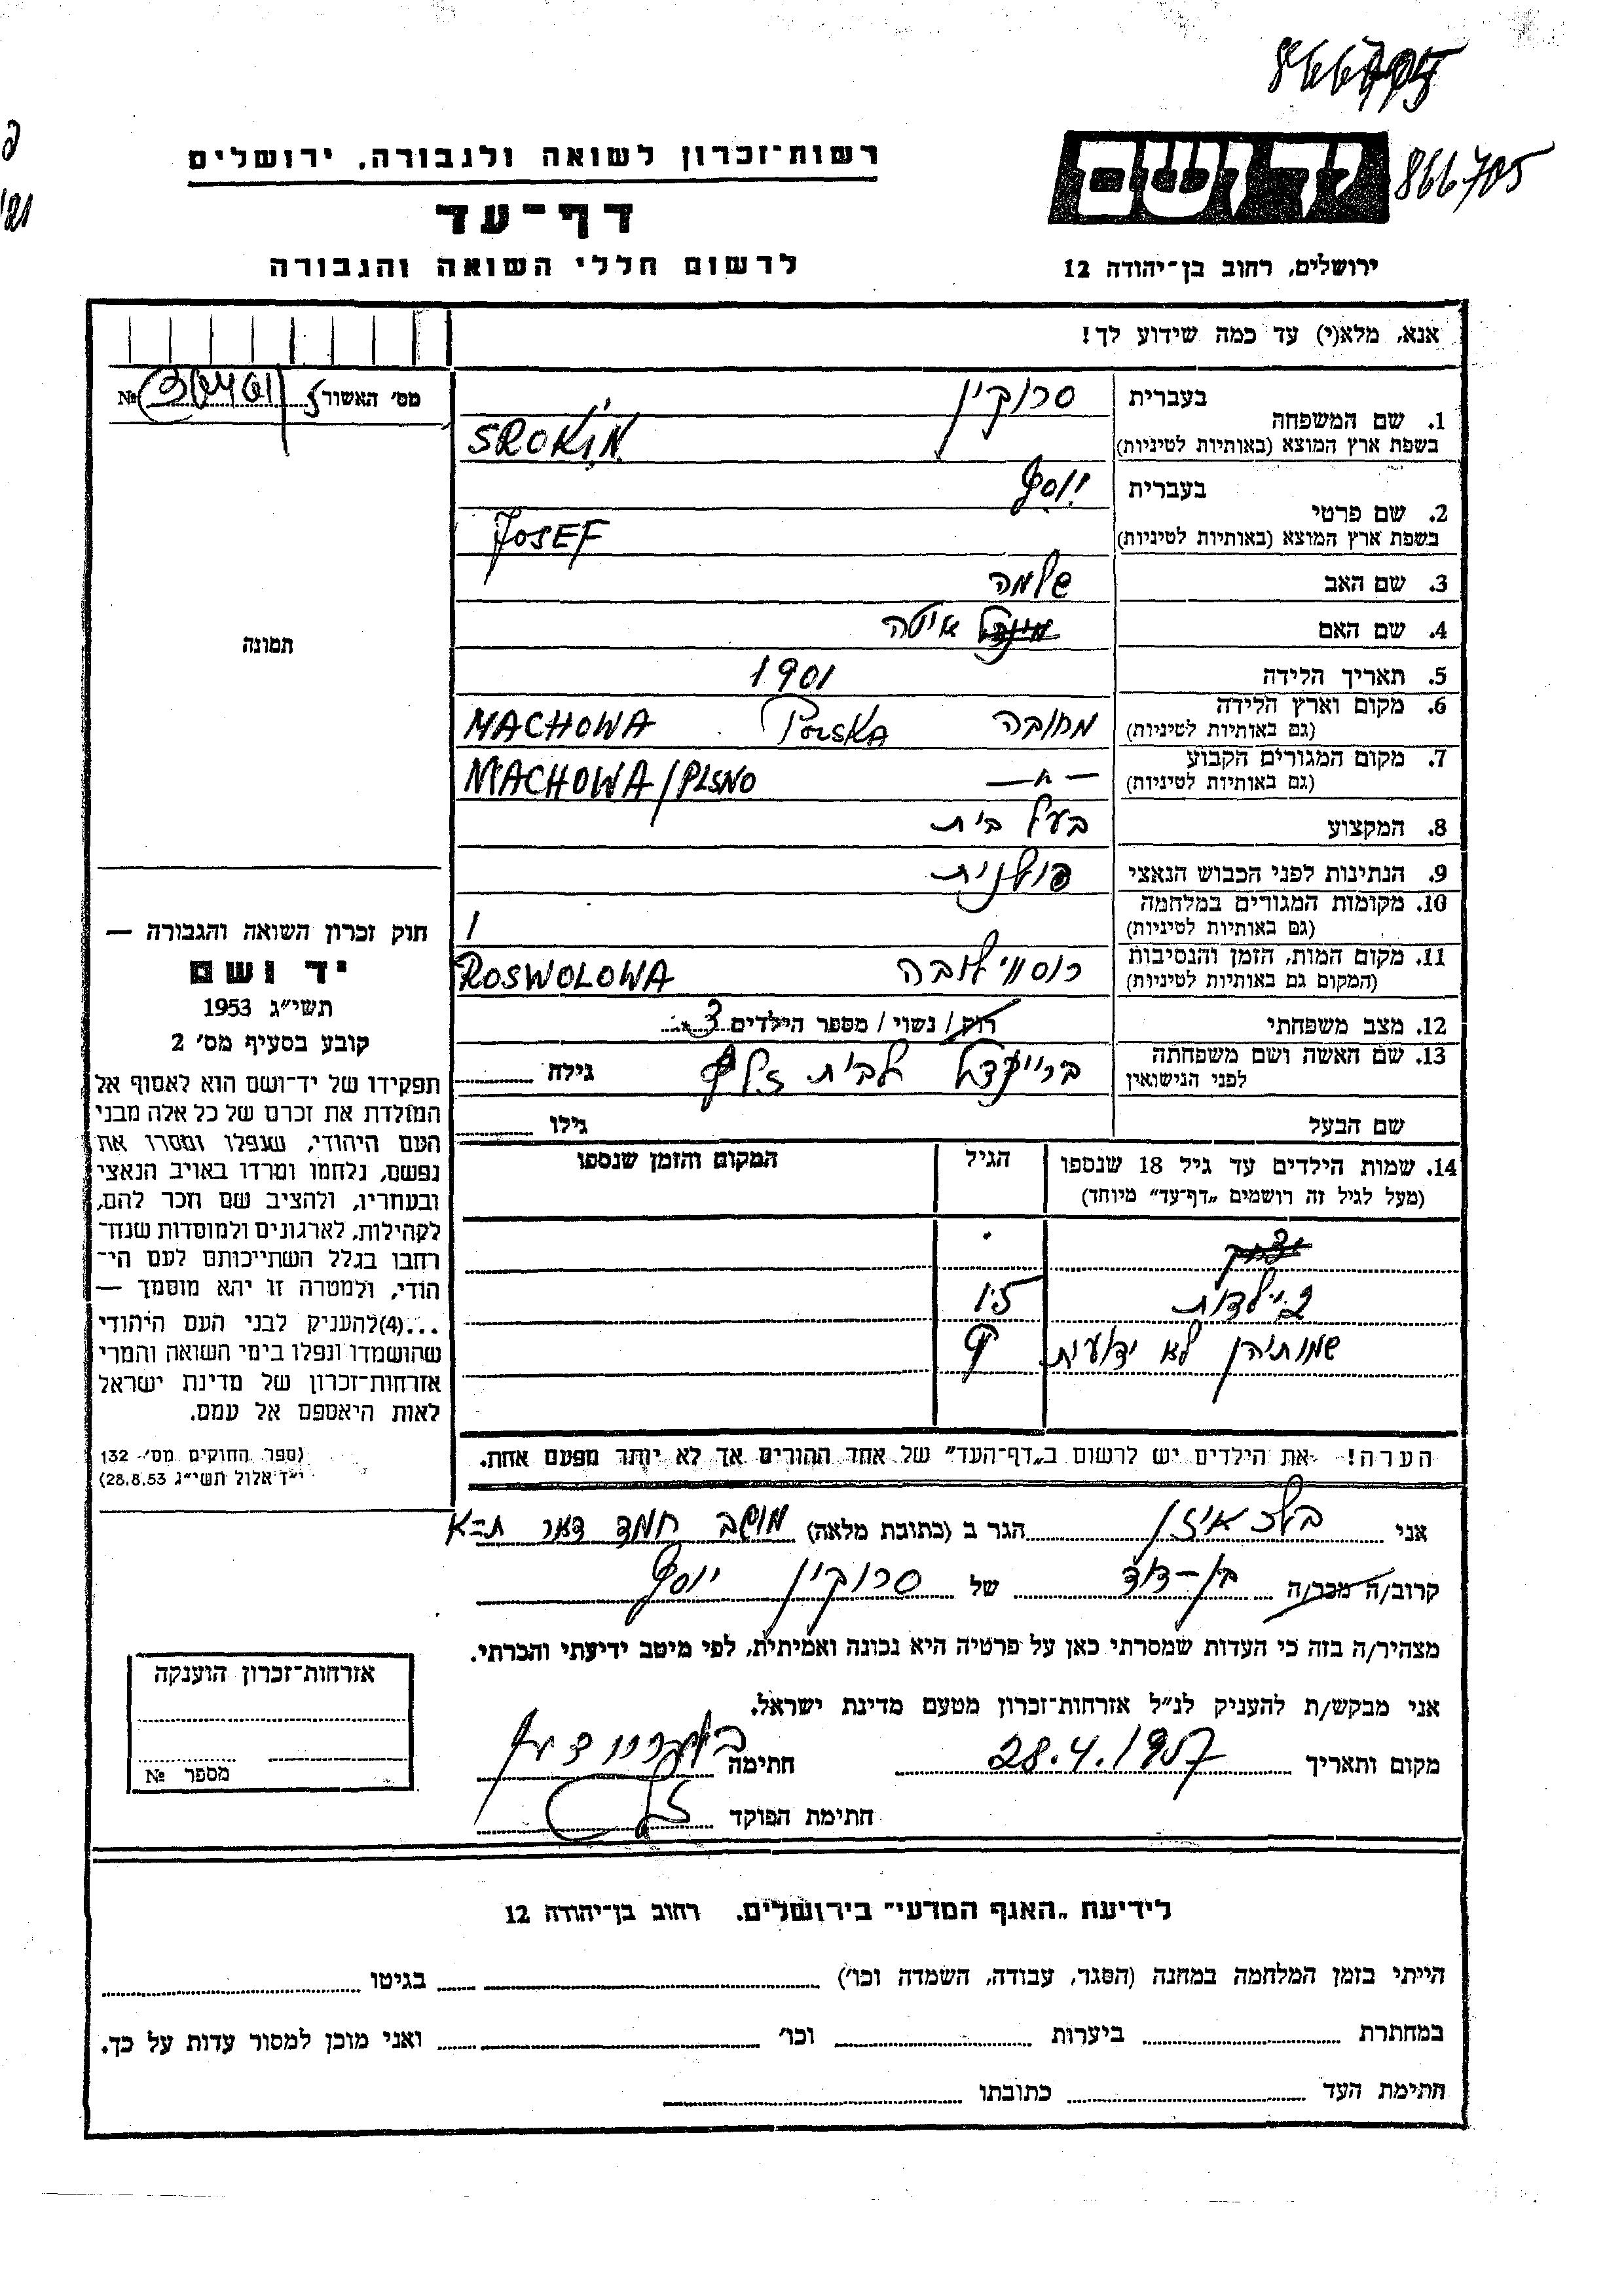 866705
866705
רשות־זכרון לשואה ולגבורה, ירושלים
יד ושם
דף־עד
לרשום חללי השואה והגבורה
ירושלים, רחוב בן־יהודה 12
אנא, מלא(י) עד כמה שידוע לך!
מס׳ האשור №
1. שם המשפחה
בעברית סרוקין
בשפת ארץ המוצא (באותיות לטיניות) SROKIN
2. שם פרטי
בעברית יוסף
בשפת ארץ המוצא (באותיות לטיניות) JOSEF
3. שם האב שלמה
4. שם האם איטה
5. תאריך הלידה 1901
6. מקום וארץ הלידה
(גם באותיות לטיניות) מחובה Polska MACHOWA
7. מקום המגורים הקבוע
(גם באותיות לטיניות) — " — MACHOWA/PLSNO
8. המקצוע בעל בית
9. הנתינות לפני הכבוש הנאצי פולנית
10. מקומות המגורים במלחמה
(גם באותיות לטיניות)
11. מקום המות, הזמן והנסיבות
(המקום גם באותיות לטיניות) רוסווילובה ROSWOLOWA
12. מצב משפחתי רוק/ נשוי / מספר הילדים 3
13. שם האשה ושם משפחתה
לפני הנישואין בריינדל לבית גילה
שם הבעל גילו
14. שמות הילדים עד גיל 18 שנספו
(מעל לגיל זה רושמים „דף־עד” מיוחד)
הגיל
המקום והזמן שנספו
2 ילדות 15
שמותיהן לא ידועות 9
הערה! את הילדים יש לרשום ב„דף־העד” של אחד ההורים אך לא יותר מפעם אחת.
תמונה
חוק זכרון השואה והגבורה —
יד ושם
תשי״ג 1953
קובע בסעיף מס׳ 2
תפקידו של יד־ושם הוא לאסוף אל
המולדת את זכרם של כל אלה מבני
העם היהודי, שנפלו ומסרו את
נפשם, נלחמו ומרדו באויב הנאצי
ובעוזריו, ולהציב שם וזכר להם,
לקהילות, לארגונים ולמוסדות שנח־
רבו בגלל השתייכותם לעם הי־
הודי, ולמטרה זו יהא מוסמך —
...(4)להעניק לבני העם היהודי
שהושמדו ונפלו בימי השואה והמרי
אזרחות־זכרון של מדינת ישראל
לאות היאספם אל עמם.
(ספר החוקים מס׳ 132
י״ז אלול תשי״ג 28.8.53)
אני הגר ב (כתובת מלאה) מושב חמד דאר ת-א
קרוב/ה מכר/ה בן-דוד של סרוקין יוסף
מצהיר/ה בזה כי העדות שמסרתי כאן על פרטיה היא נכונה ואמיתית, לפי מיטב ידיעתי והכרתי.
אני מבקש/ת להעניק לנ״ל אזרחות־זכרון מטעם מדינת ישראל.
מקום ותאריך 28.4.1957 חתימה
חתימת הפוקד
אזרחות־זכרון הוענקה
מספר №
לידיעת „האגף המדעי” בירושלים, רחוב בן־יהודה 12
הייתי בזמן המלחמה במחנה (הסגר, עבודה, השמדה וכו׳) בגיטו
במחתרת ביערות וכו׳ ואני מוכן למסור עדות על כך.
חתימת העד כתובתו